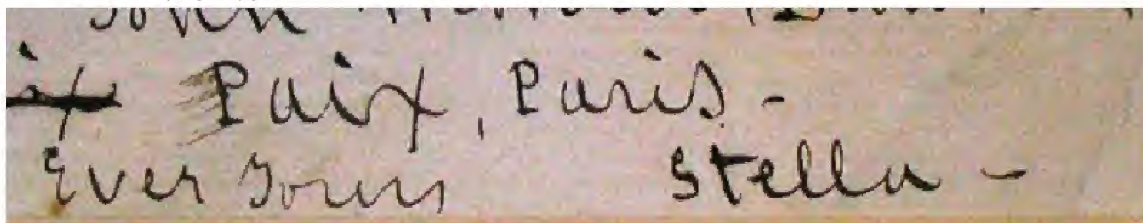 John
Paix, Paris -
Ever Yours Stella -